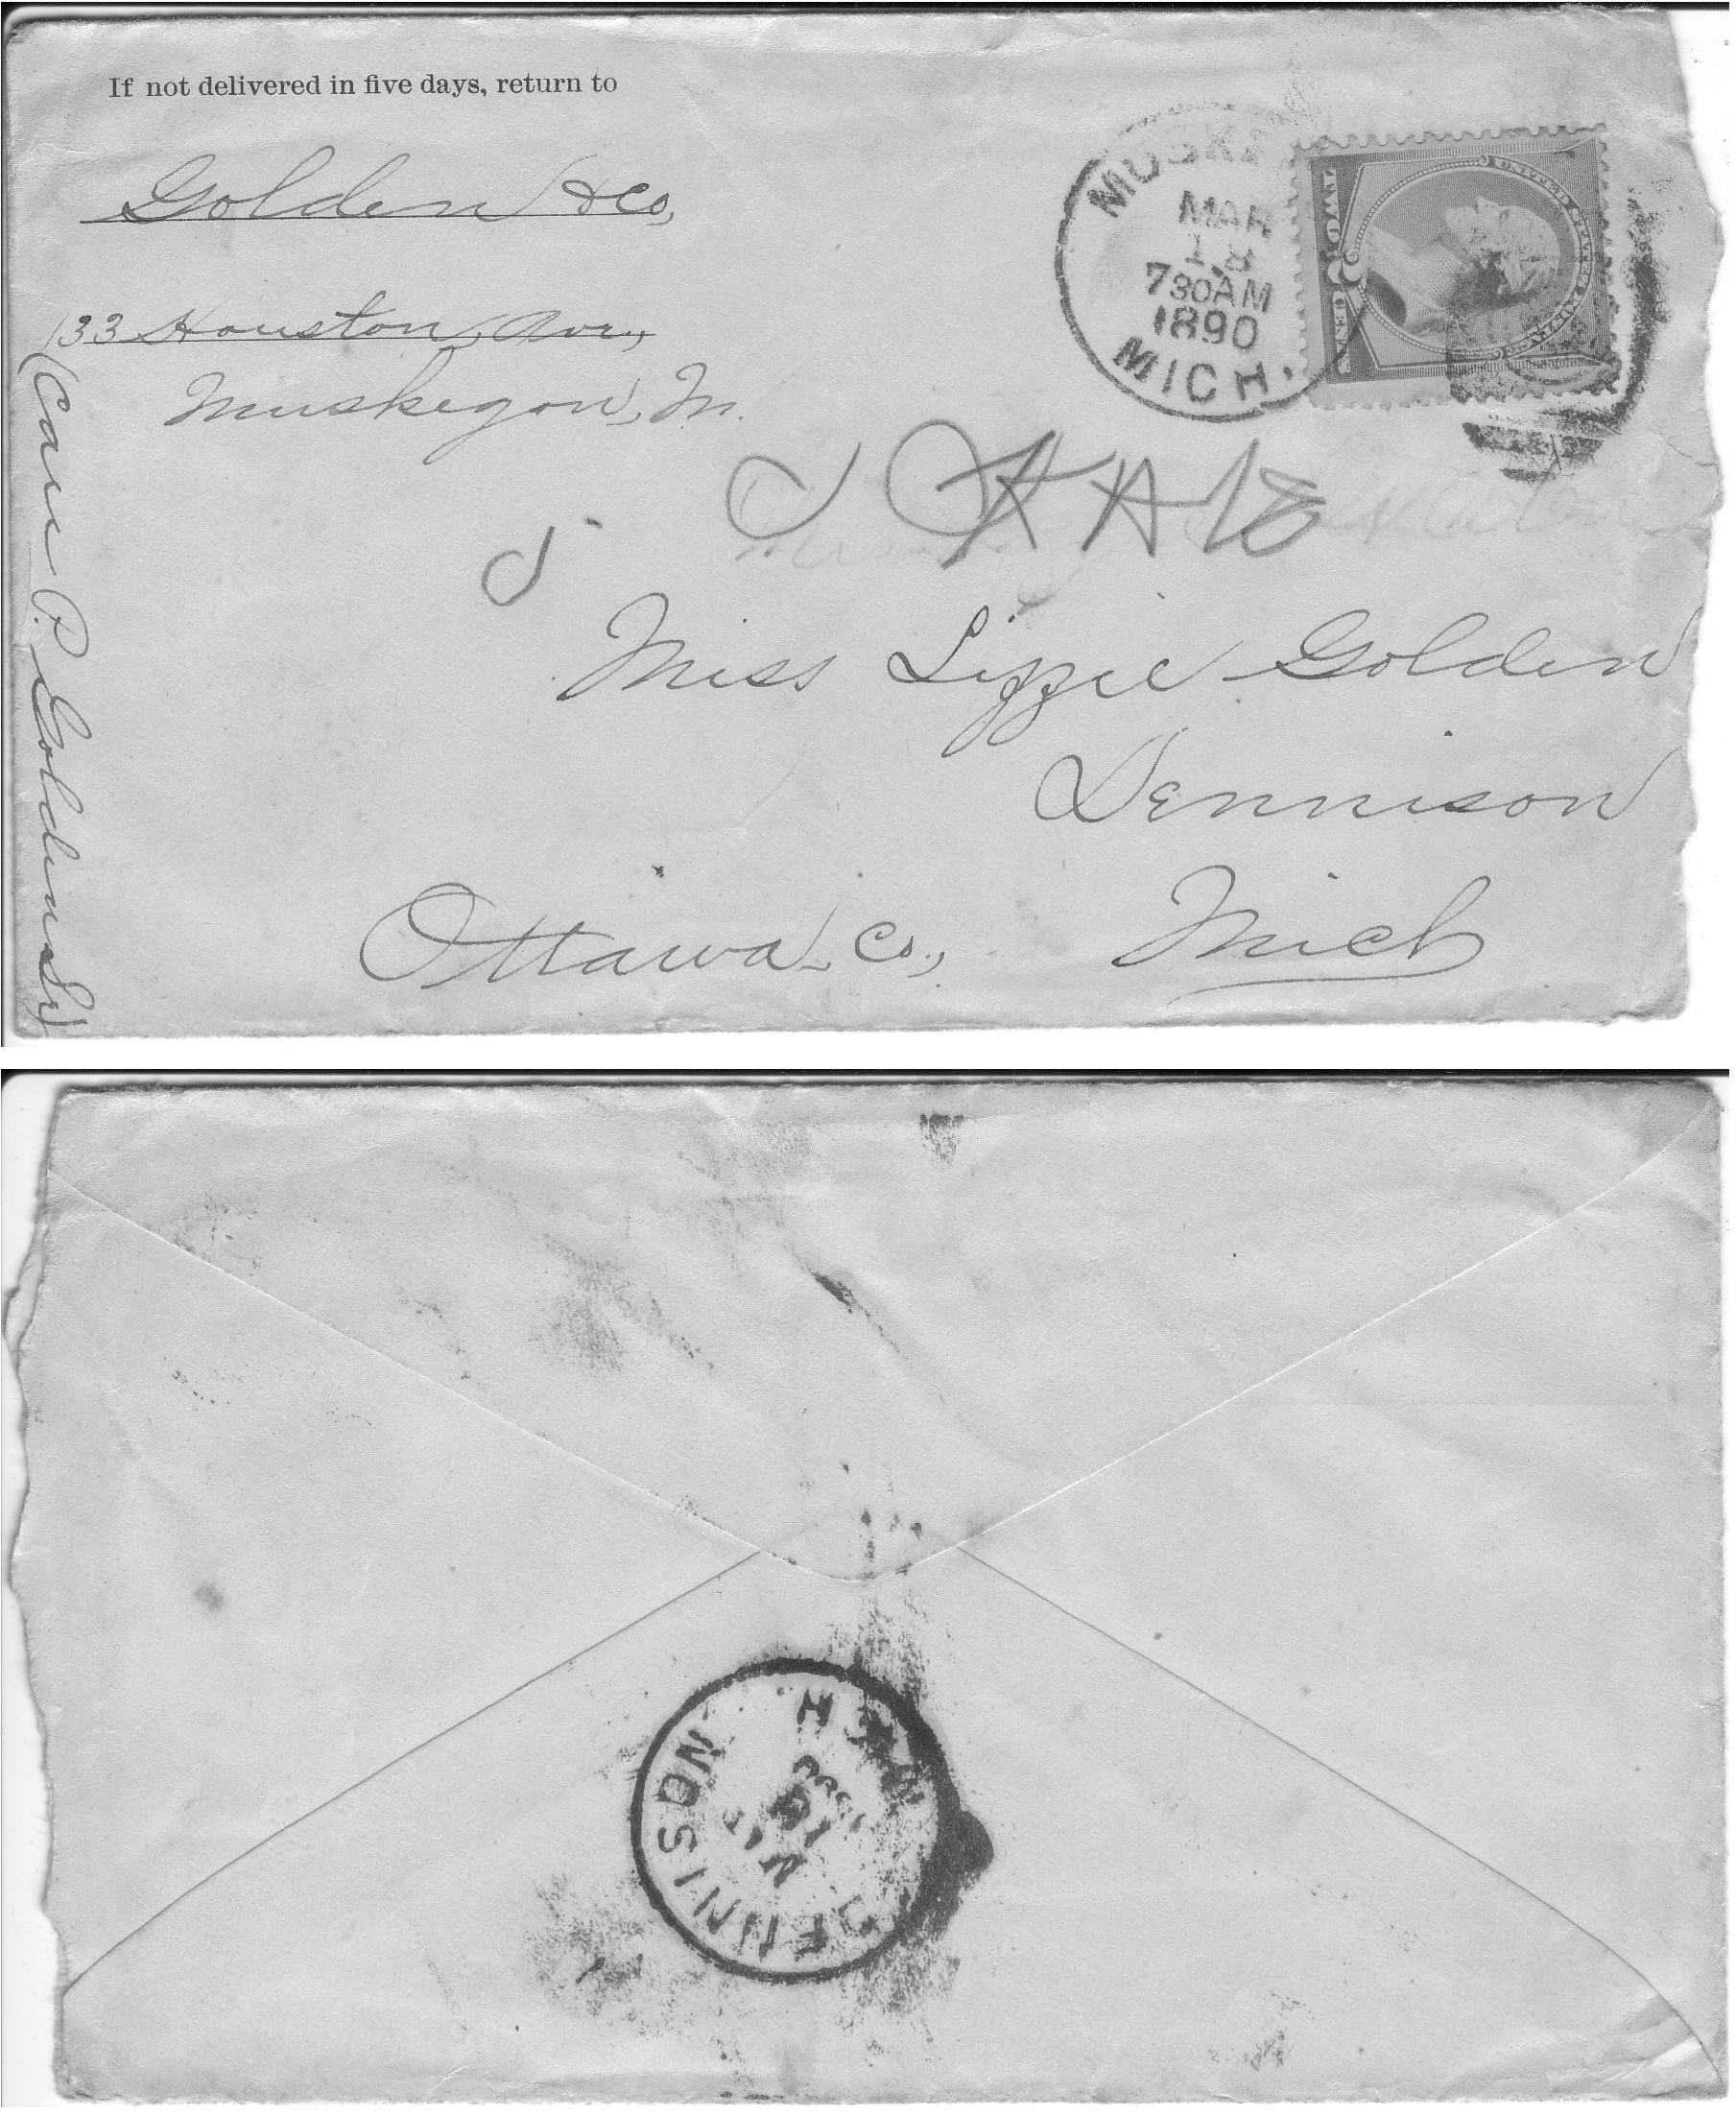 If not delivered in five days, return to
Golden & Co,
133 Houston, Ave.,
Muskegon, M.
(Care P. Golden Sr)
MAR
18
730AM
1890
MICH.
TWO
Miss Lizzie Golden
Dennison
Ottawa Co., Mich
DENNISON
MICH